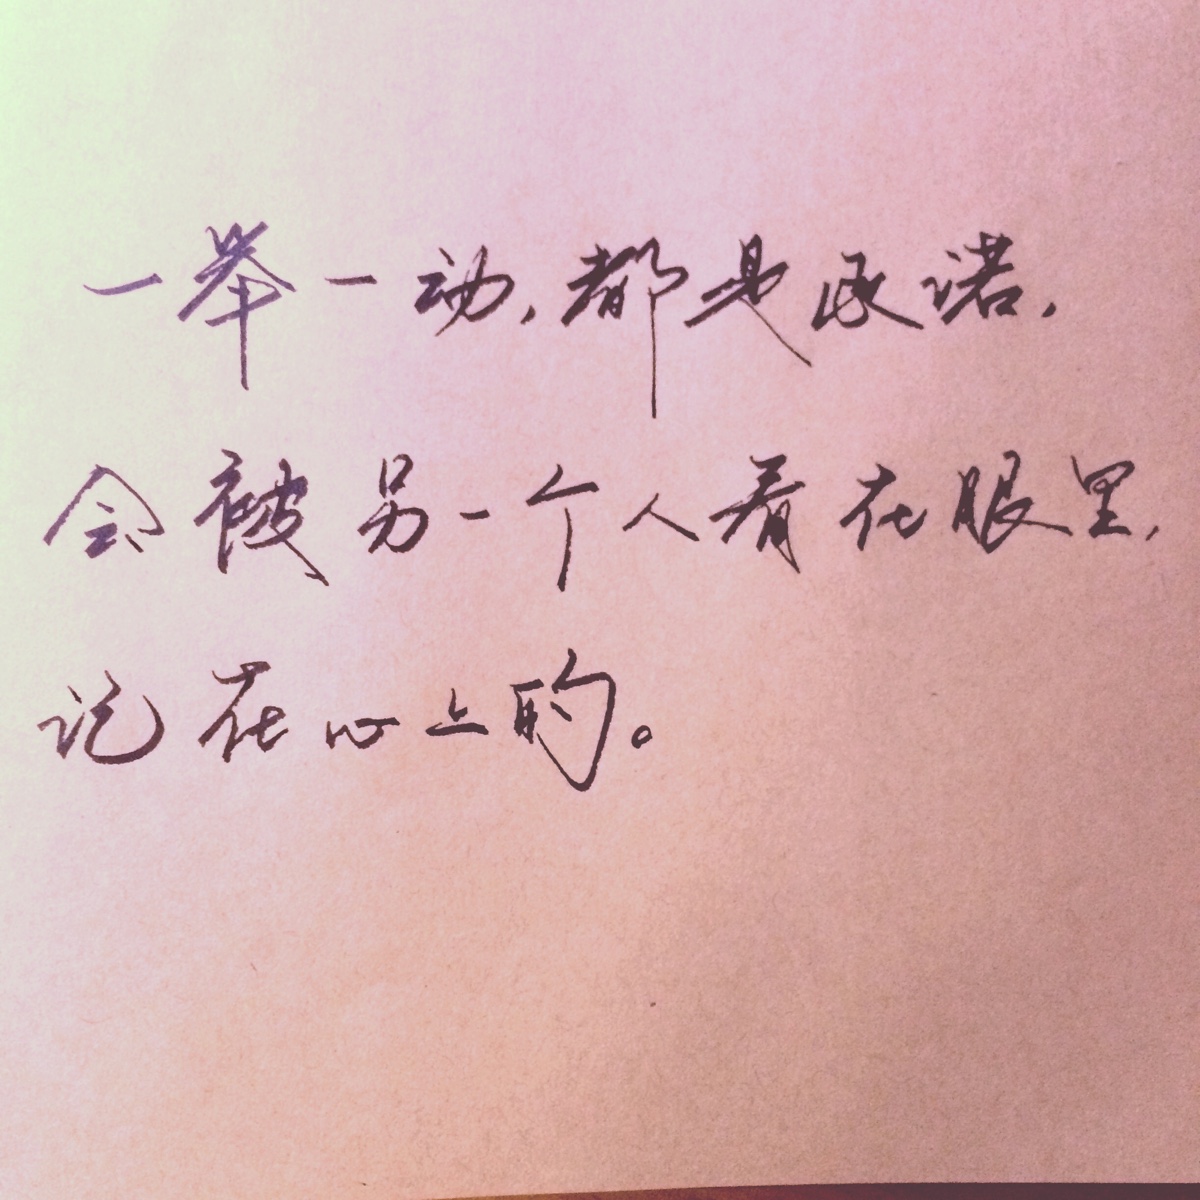 一举一动，都是承诺，
会被另一个人看在眼里，
记在心上的。